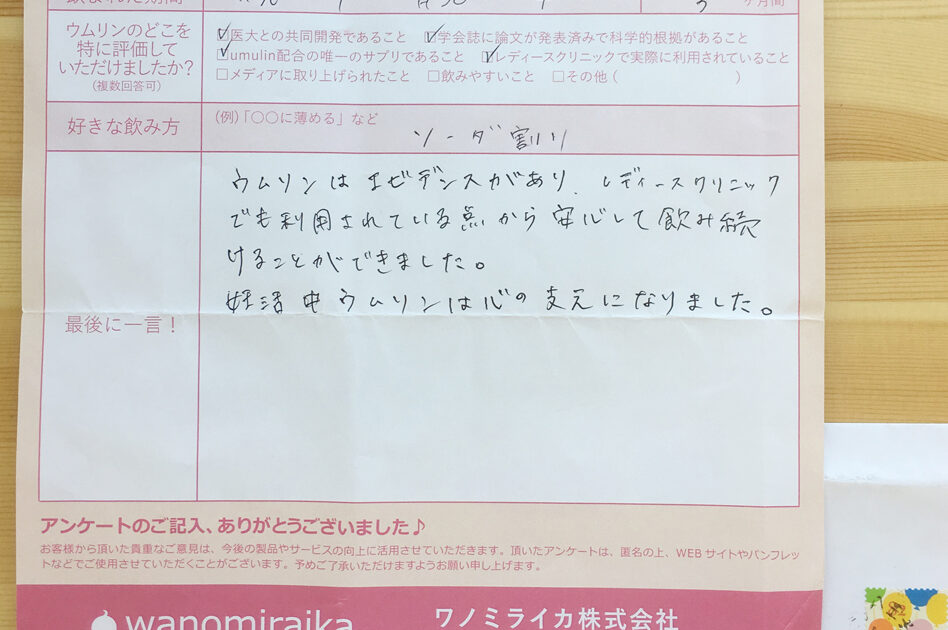 ヶ月間
ウムリンのどこを
特に評価して
いただけましたか?
(複数回答可)
☑医大との共同開発であること ☑学会誌に論文が発表済みで科学的根拠があること
☑umulin配合の唯一のサプリであること ☑レディースクリニックで実際に利用されていること
□メディアに取り上げられたこと □飲みやすいこと □その他( )
好きな飲み方
(例)「〇〇に薄める」など
ソーダ割り
最後に一言!
ウムリンはエビデンスがあり、レディースクリニック
でも利用されている点から安心して飲み続
けることができました。
妊活中ウムリンは心の支えになりました。
アンケートのご記入、ありがとうございました♪
お客様から頂いた貴重なご意見は、今後の製品やサービスの向上に活用させていただきます。頂いたアンケートは、匿名の上、WEBサイトやパンフレッ
トなどでご使用させていただくことがございます。予めご了承いただけますようお願い申し上げます。
wanomiraika
ワノミライカ株式会社